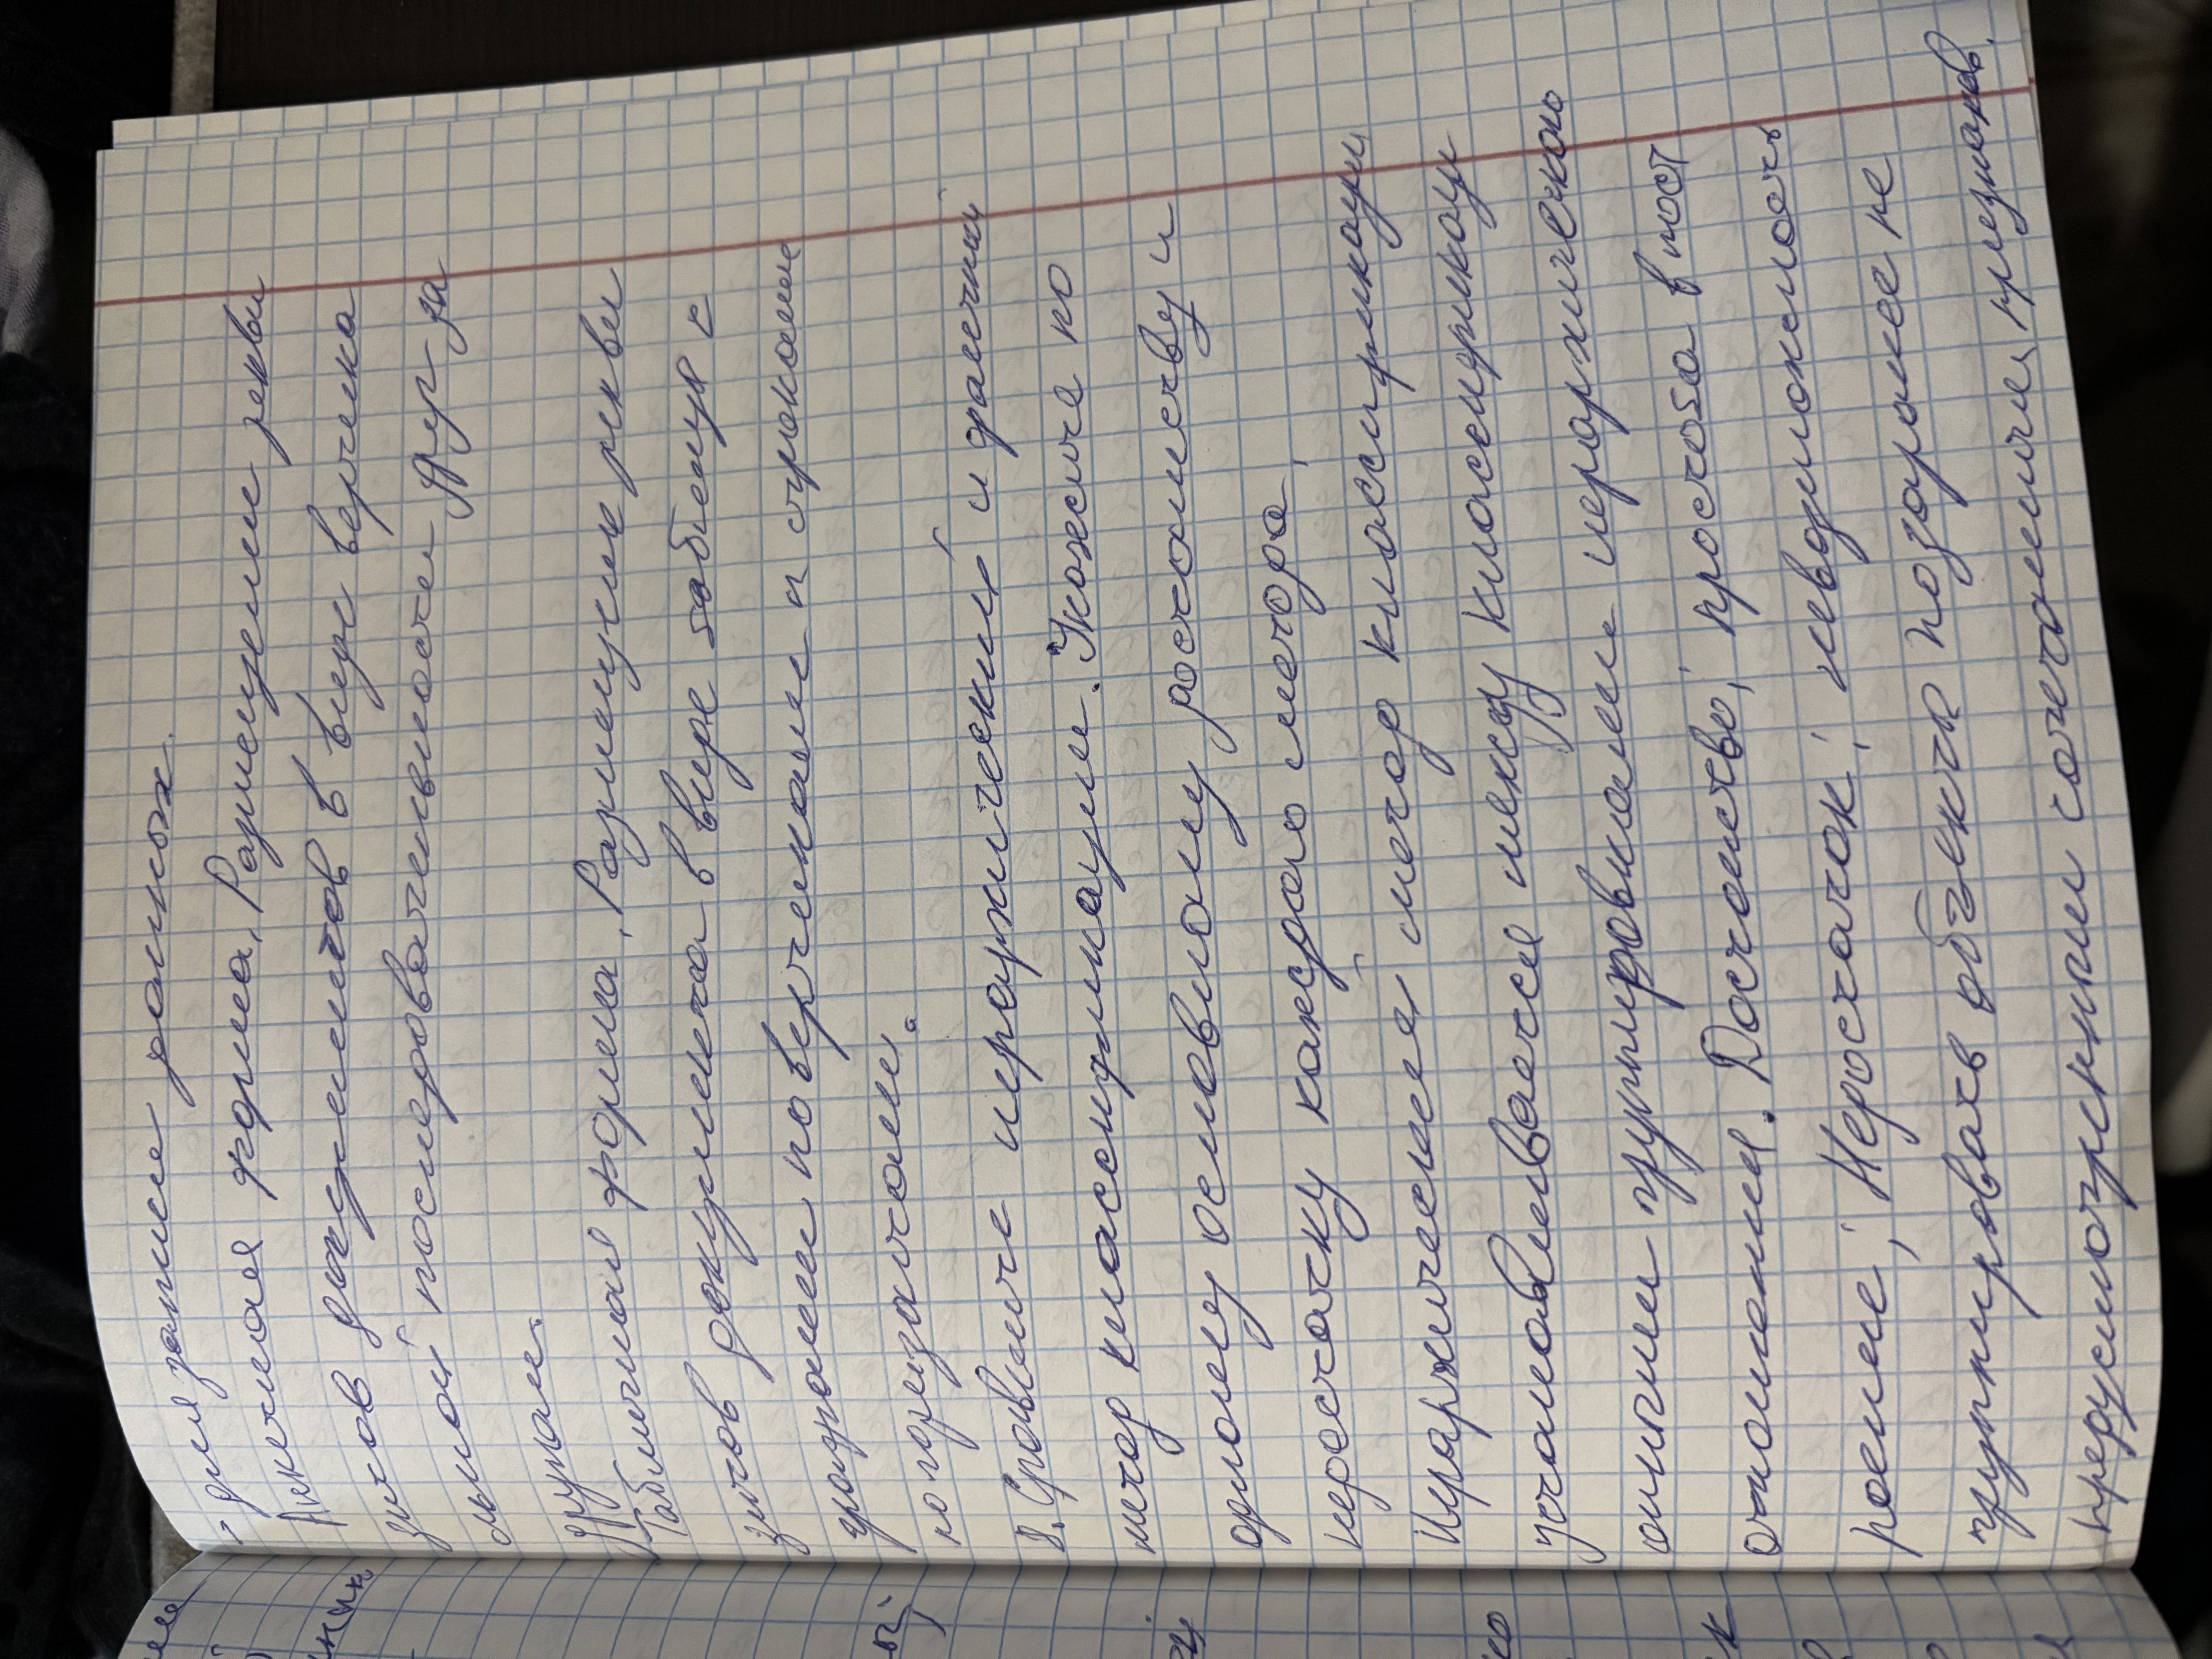 для записи данных.
Анкетная форма. Размещение рекви
зитов документов в виде вертика
льной последовательности друг за
другом.
Табличная форма. Размещение рекви
зитов документа в виде таблицы с
графами по вертикали и строками
по горизонтали.
8. Сравните иерархический и фасетный
метод классификации. Укажите по
одному основному достоинству и
недостатку каждого метода.
Иерархический метод классификации
устанавливается между классификац
онными группировками иерархического
отношения. Достоинство, простота в пост
роение, Недостаток, невозможность
группировать объекта позаранее не
предусмотренным сочетаниям признаков.